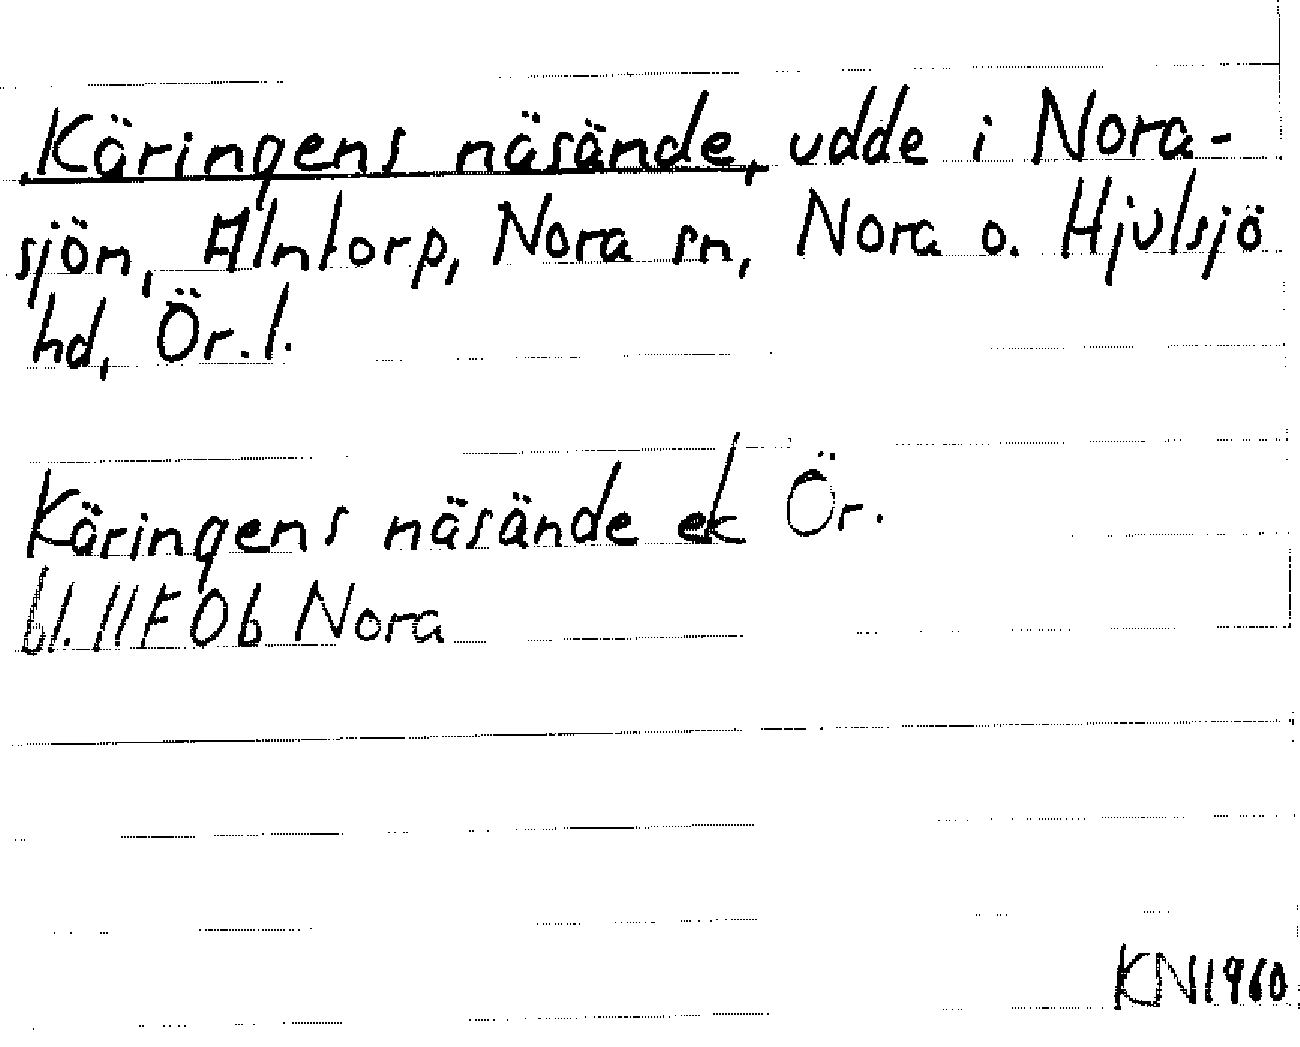 Käringens näsände, udde i Nora-
sjön, Alntorp, Nora sn, Nora o. Hjulsjö
hd, Ör. l.
Käringens näsände ek Ör.
bl. 11F 0b Nora
KN 1960